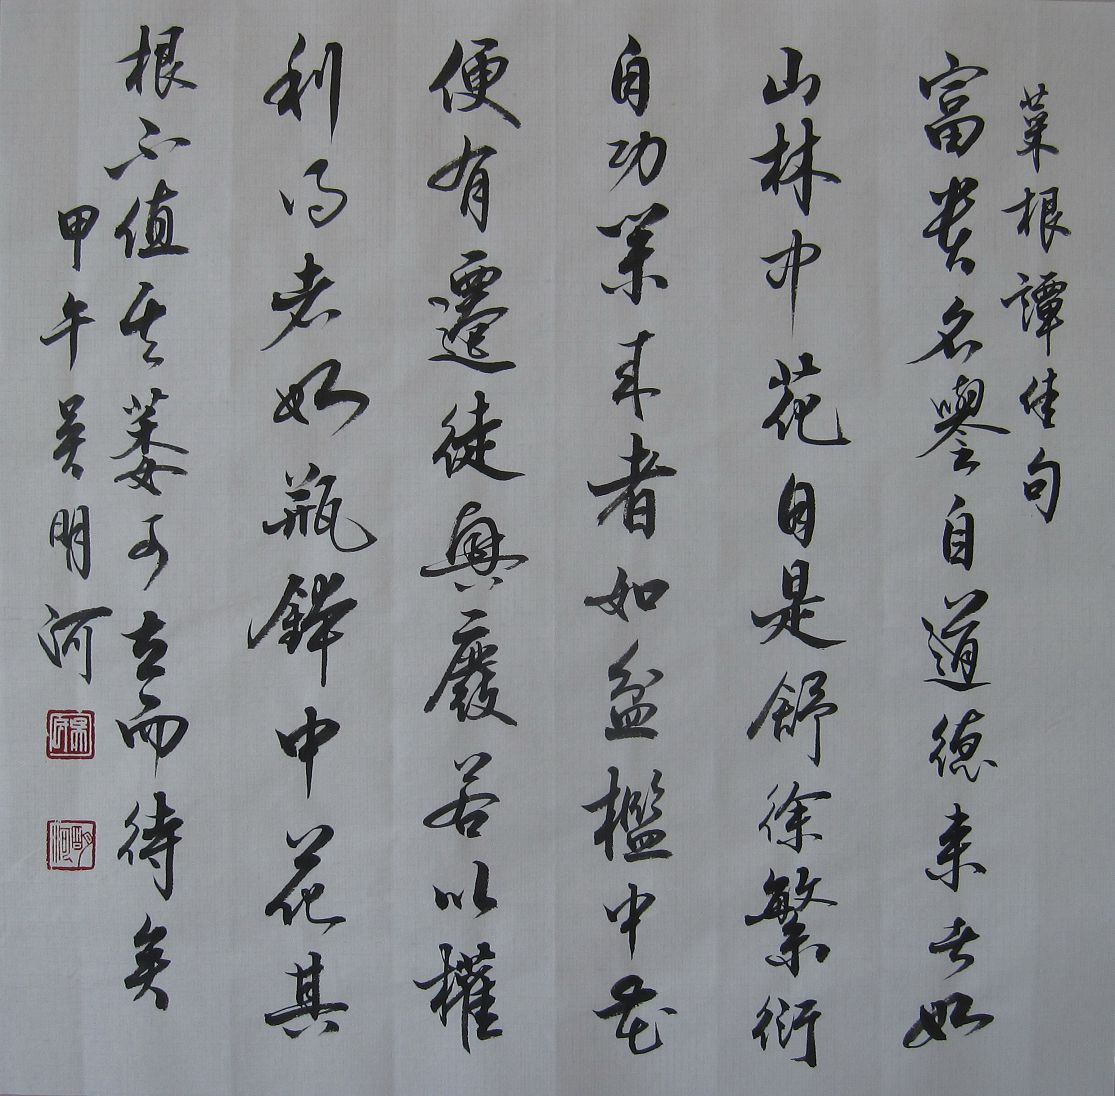 菜根譚佳句
富貴名譽自道德来者如
山林中花自是舒徐繁衍
自功業来者如盆檻中花
便有遷徙興廢若以權
利得者如瓶鉢中花其
根不值其萎可立而待矣
甲午吳明河
明河